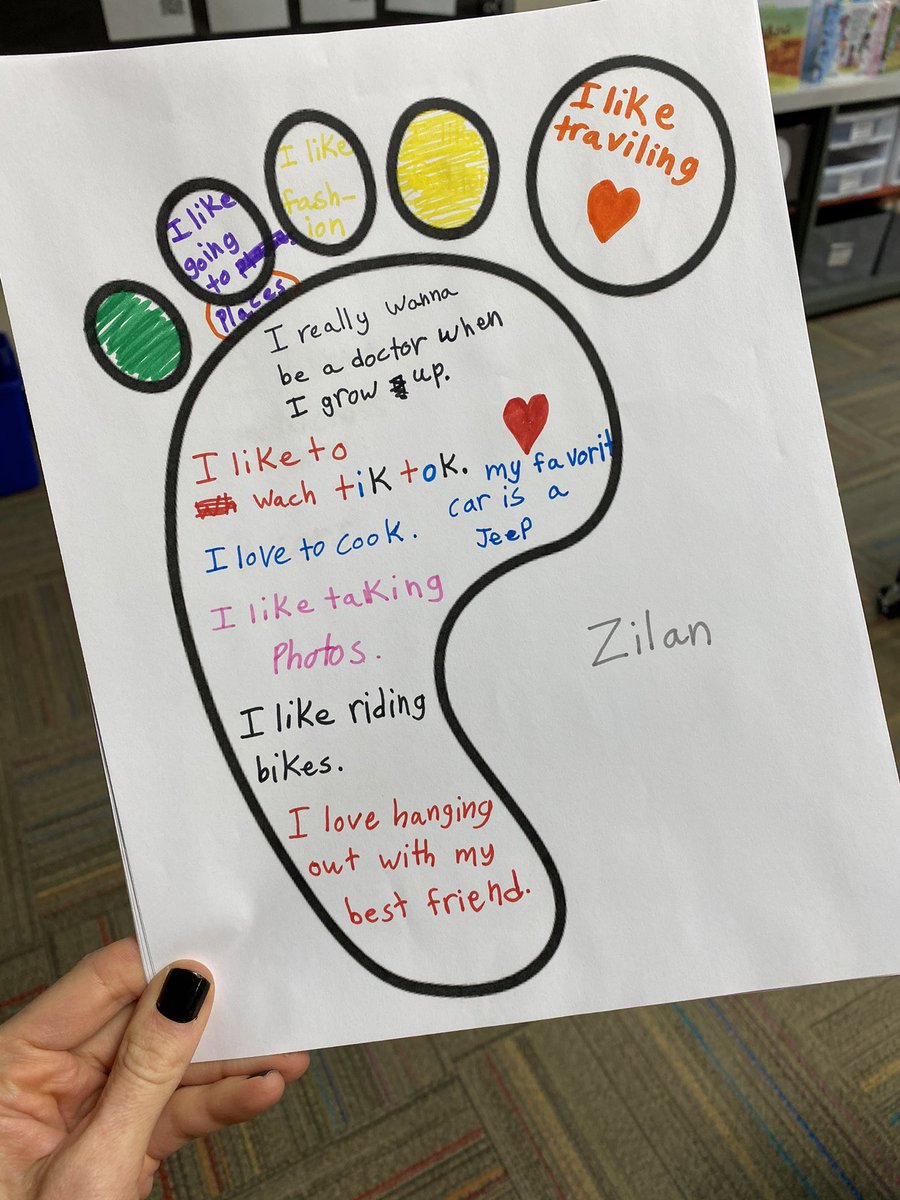 I like
traviling
I like
fash-
ion
I like
going
to
places
I really wanna
be a doctor when
I grow up.
I like to
wach tik tok.
my favorit
car is a
Jeep
I love to cook.
I like taking
Photos.
I like riding
bikes.
I love hanging
out with my
best friend.
Zilan